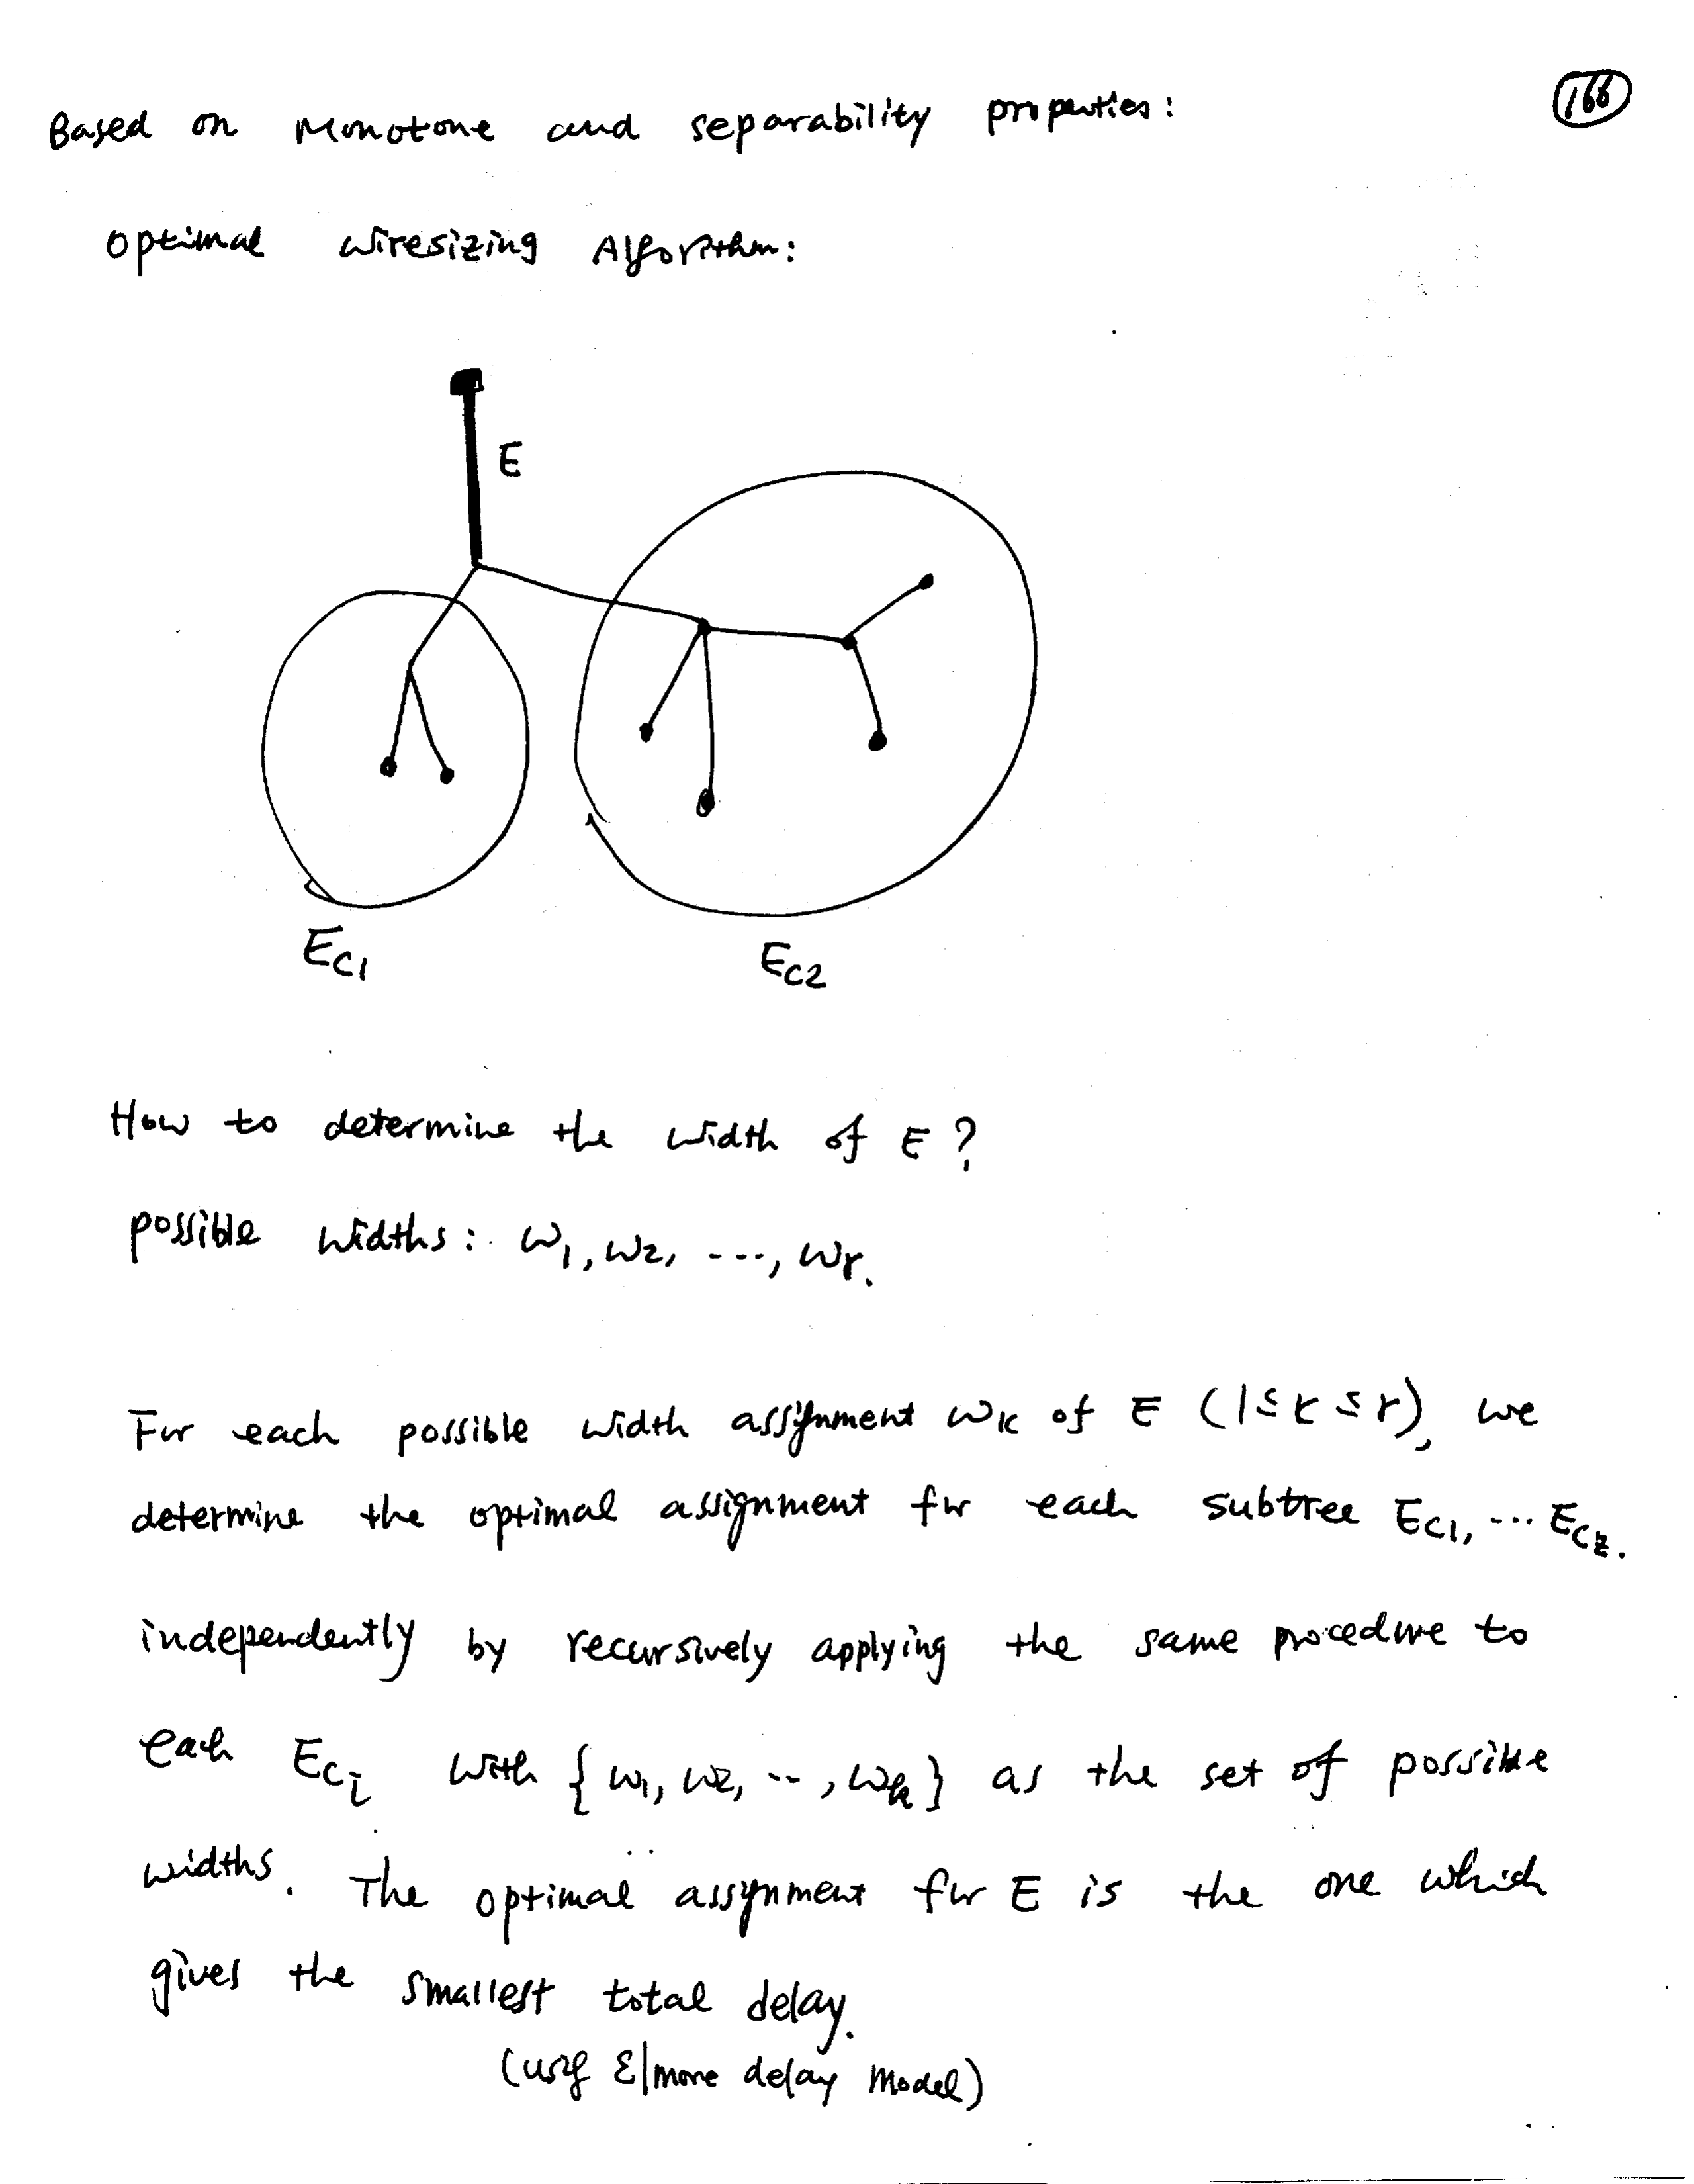 166
Based on Monotone and separability properties:
Optimal wiresizing Algorithm:
E
EC1
EC2
How to determine the width of E?
possible widths: w1, w2, ---, wr.
For each possible width assignment wk of E (1≤k≤r), we
determine the optimal assignment for each subtree EC1, ... ECz.
independently by recursively applying the same procedure to
each ECi with {w1, w2, .., wk} as the set of possible
widths. The optimal assignment for E is the one which
gives the smallest total delay.
(using Elmore delay Model)